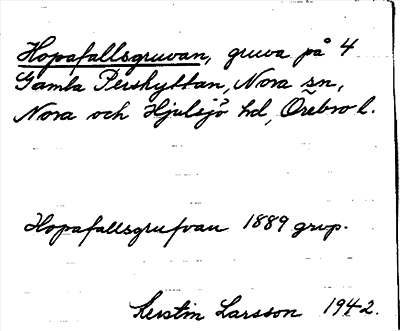 Hopafallsgruvan, gruva på 4
Gamla Pershyttan, Nora sn,
Nora och Hjulsjö hd, Örebro l.
Hopafallsgrufvan 1889 grvp.
Kerstin Larsson 1942.